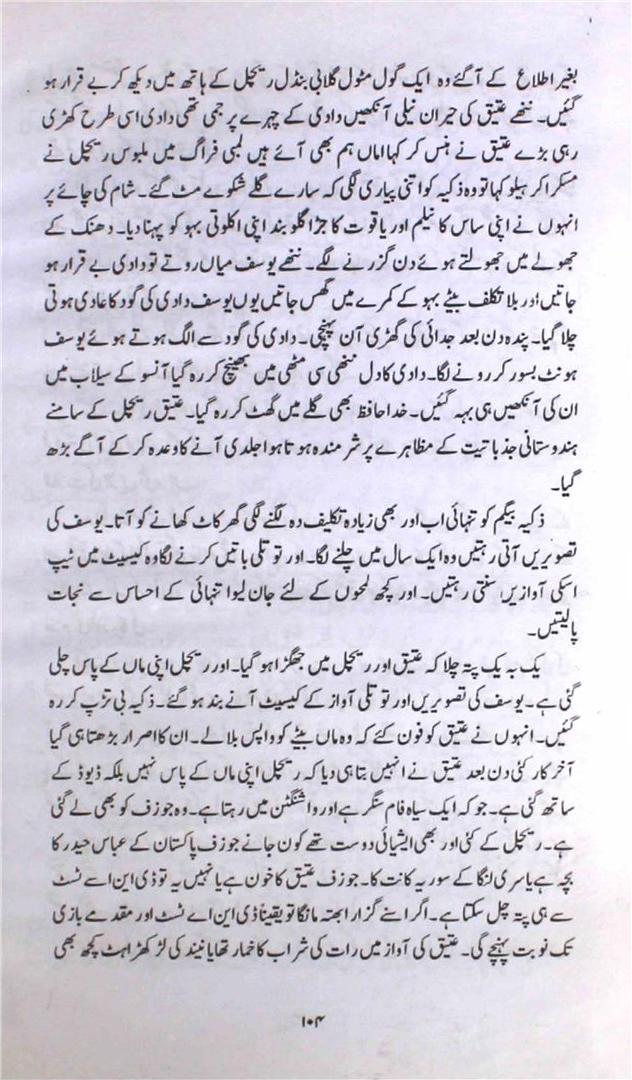 بغیر اطلاع کے آگئے وہ ایک گول مٹول گلابی بنڈل ریچل کے ہاتھ میں دیکھ کر بے قرار ہو
گئیں۔ ننھے عتیق کی حیران نیلی آنکھیں دادی کے چہرے پر جمی تھی دادی اسی طرح کھڑی
رہی بڑے عتیق نے ہنس کر کہا اماں ہم بھی آئے ہیں لمبی فراگ میں ملبوس ریچل نے
مسکرا کر ہیلو کہا تو وہ ذکیہ کو اتنی پیاری لگی کہ سارے گلے شکوے مٹ گئے۔ شام کی چائے پر
انہوں نے اپنی ساس کا نیلم اور یاقوت کا جڑا گلوبند اپنی اکلوتی بہو کو پہنا دیا۔ دھنک کے
جھولے میں جھولتے ہوئے دن گزرنے لگے۔ ننھے یوسف میاں روتے تو دادی بے قرار ہو
جاتیں اور بلا تکلف بیٹے بہو کے کمرے میں گھس جاتیں یوں یوسف دادی کی گود کا عادی ہوتی
چلا گیا۔ پندہ دن بعد جدائی کی گھڑی آن پہنچی۔ دادی کی گود سے الگ ہوتے ہوئے یوسف
ہونٹ بسور کر رونے لگا۔ دادی کا دل ننھی سی مٹھی میں بھینچ کر رہ گیا آنسو کے سیلاب میں
ان کی آنکھیں ہی بہہ گئیں۔ خدا حافظ بھی گلے میں گھٹ کر رہ گیا۔ عتیق ریچل کے سامنے
ہندوستانی جذباتیت کے مظاہرے پر شرمندہ ہوتا ہوا جلدی آنے کا وعدہ کر کے آگے بڑھ
گیا۔
ذکیہ بیگم کو تنہائی اب اور بھی زیادہ تکلیف دہ لگنے لگی گھر کاٹ کھانے کو آتا۔ یوسف کی
تصویریں آتی رہتیں وہ ایک سال میں چلنے لگا۔ اور توتلی باتیں کرنے لگا وہ کیسیٹ میں ٹیپ
اسکی آوازیں سنتی رہتیں۔ اور کچھ لمحوں کے لئے جان لیوا تنہائی کے احساس سے نجات
پالیتیں۔
یک بہ یک پتہ چلا کہ عتیق اور ریچل میں جھگڑا ہو گیا۔ اور ریچل اپنی ماں کے پاس چلی
گئی ہے۔ یوسف کی تصویریں اور توتلی آواز کے کیسیٹ آنے بند ہو گئے۔ ذکیہ بی تڑپ کر رہ
گئیں۔ انہوں نے عتیق کو فون کئے کہ وہ ماں بیٹے کو واپس بلا لے۔ ان کا اصرار بڑھتا ہی گیا
آخر کار کئی دن بعد عتیق نے انہیں بتا ہی دیا کہ ریچل اپنی ماں کے پاس نہیں بلکہ ڈیوڈ کے
ساتھ گئی ہے۔ جو کہ ایک سیاہ فام سنگر ہے اور واشنگٹن میں رہتا ہے۔ وہ جوزف کو بھی لے گئی
ہے۔ ریچل کے کئی اور بھی ایشیائی دوست تھے کون جانے جوزف پاکستان کے عباس حیدر کا
بچہ ہے یا سری لنگا کے سوریہ کانت کا۔ جوزف عتیق کا خون ہے یا نہیں یہ تو ڈی این اے ٹسٹ
سے ہی پتہ چل سکتا ہے۔ اگر اسنے گزارا بھتہ مانگا تو یقیناً ڈی این اے ٹسٹ اور مقدمے بازی
تک نوبت پہنچے گی۔ عتیق کی آواز میں رات کی شراب کا خمار تھا یا نیند کی لڑکھڑاہٹ کچھ بھی
۱۰۴